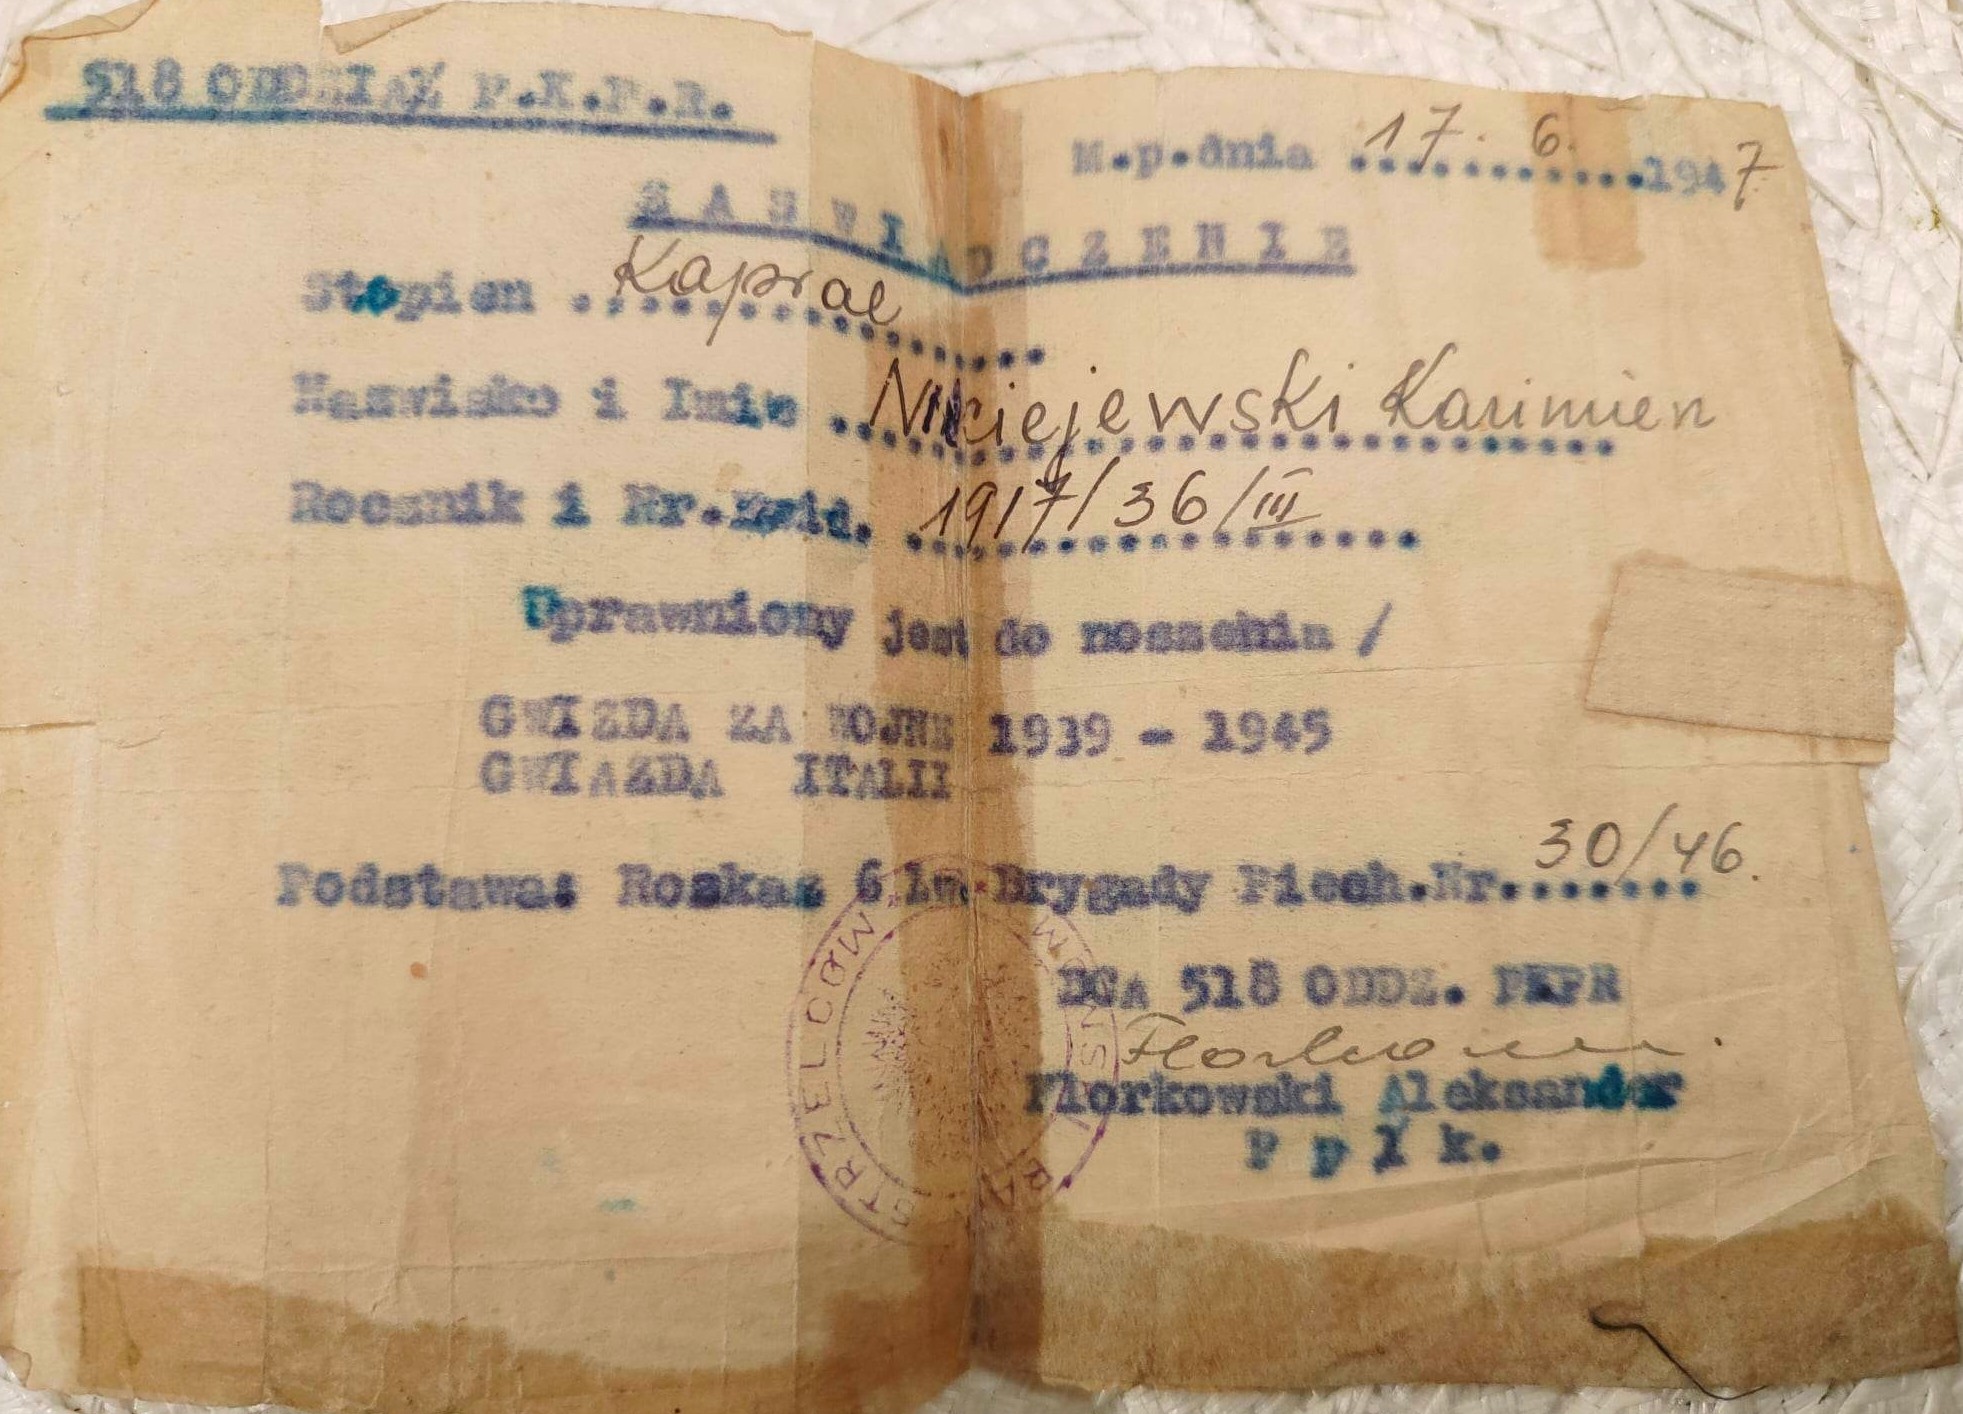 518 ODDZIAŁ P.K.P.R.
M.p.dnia 17. 6. 1947
ZAŚWIADCZENIE
Stopien Kapral
Nazwisko i Imie Niciejewski Kazimierz
Rocznik i Nr.Ewid. 1917/36/III
Uprawniony jest do noszenia /
GWIZDA ZA WOJNE 1939 - 1945
GWIAZDA ITALII
Podstawa: Rozkaz 6 lw. Brygady Piech.Nr. 30/46.
DCA 518 ODDZ. PKPR
Florkowski Aleksander
Ppłk.
STRZELCÓW